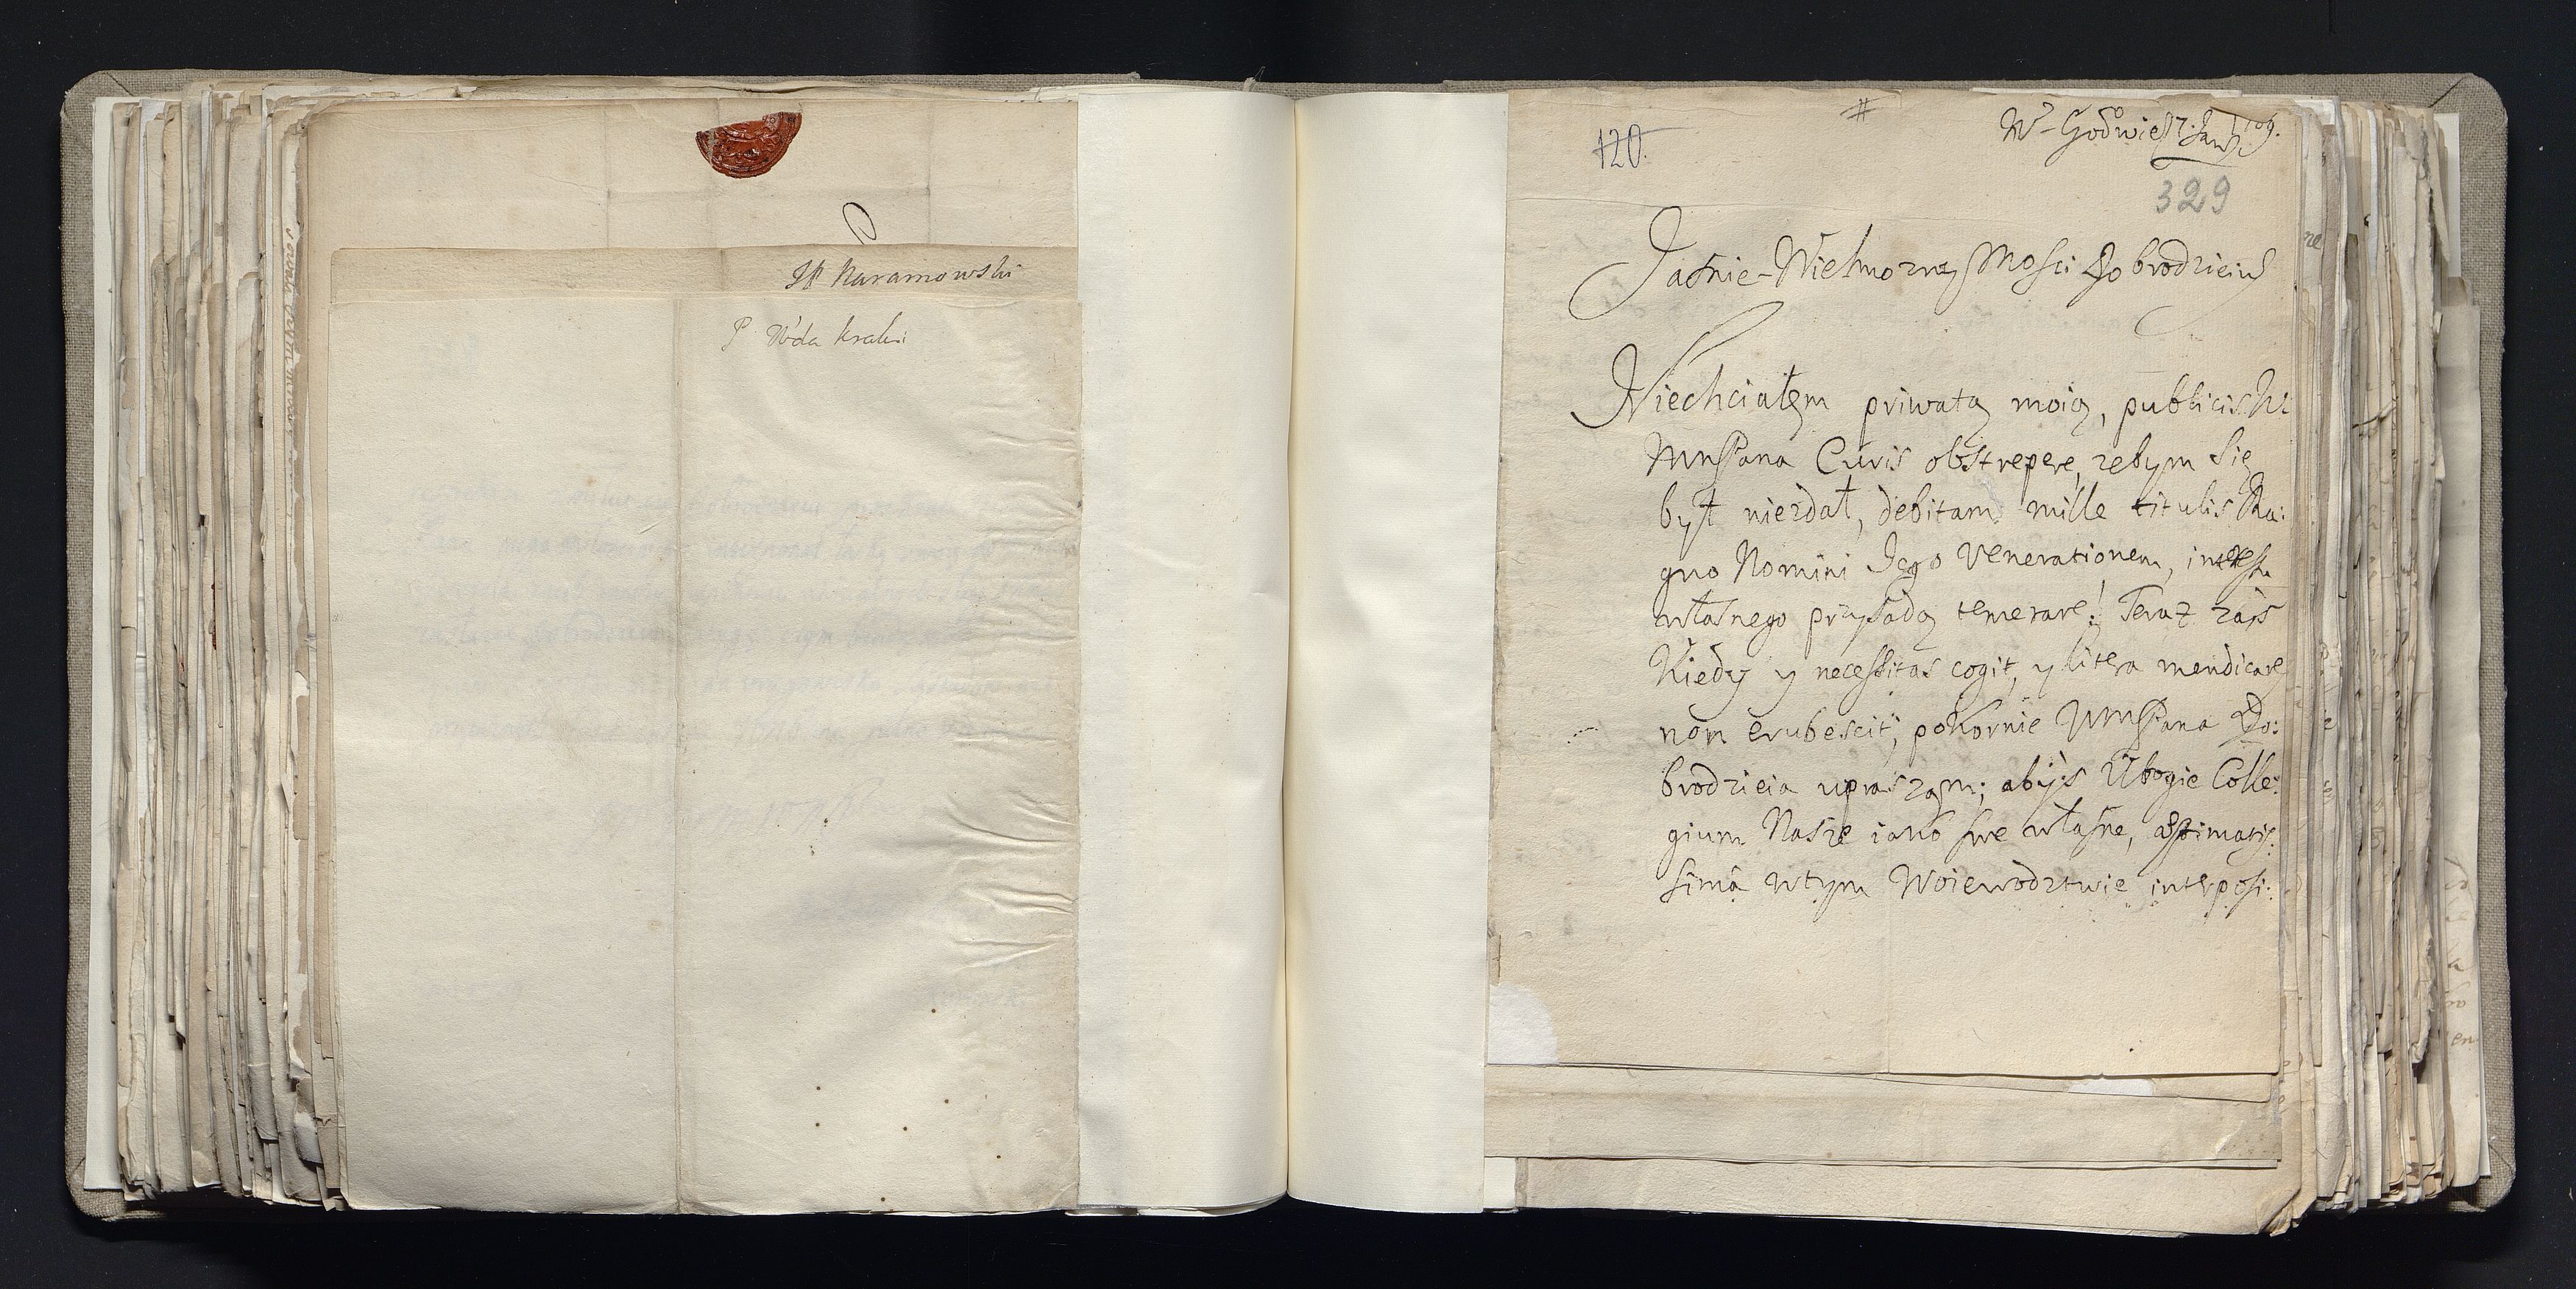 JP Karamowski
P Wda krak:
120.
#
329
Jaśnie-Wielmozny Mosci Dobrodzieiu
Niechciałem priwatą moią, publicis
WMPana Curis obstrepere, zebym się
był niezdał, debitam mille titulis Ma:
gno Nomini Jego Venerationem, interessu
własnego przysadą temerare! Teraz zaś
Kiedy y necessitas cogit, y litera mendicare
non erubescit; pokornie WMPana Do:
brodzieia upraszam; abyś Ubogie Colle:
gium Nasze iako swe własne, æstimatis:
simâ wtym Woiewodztwie interposi: